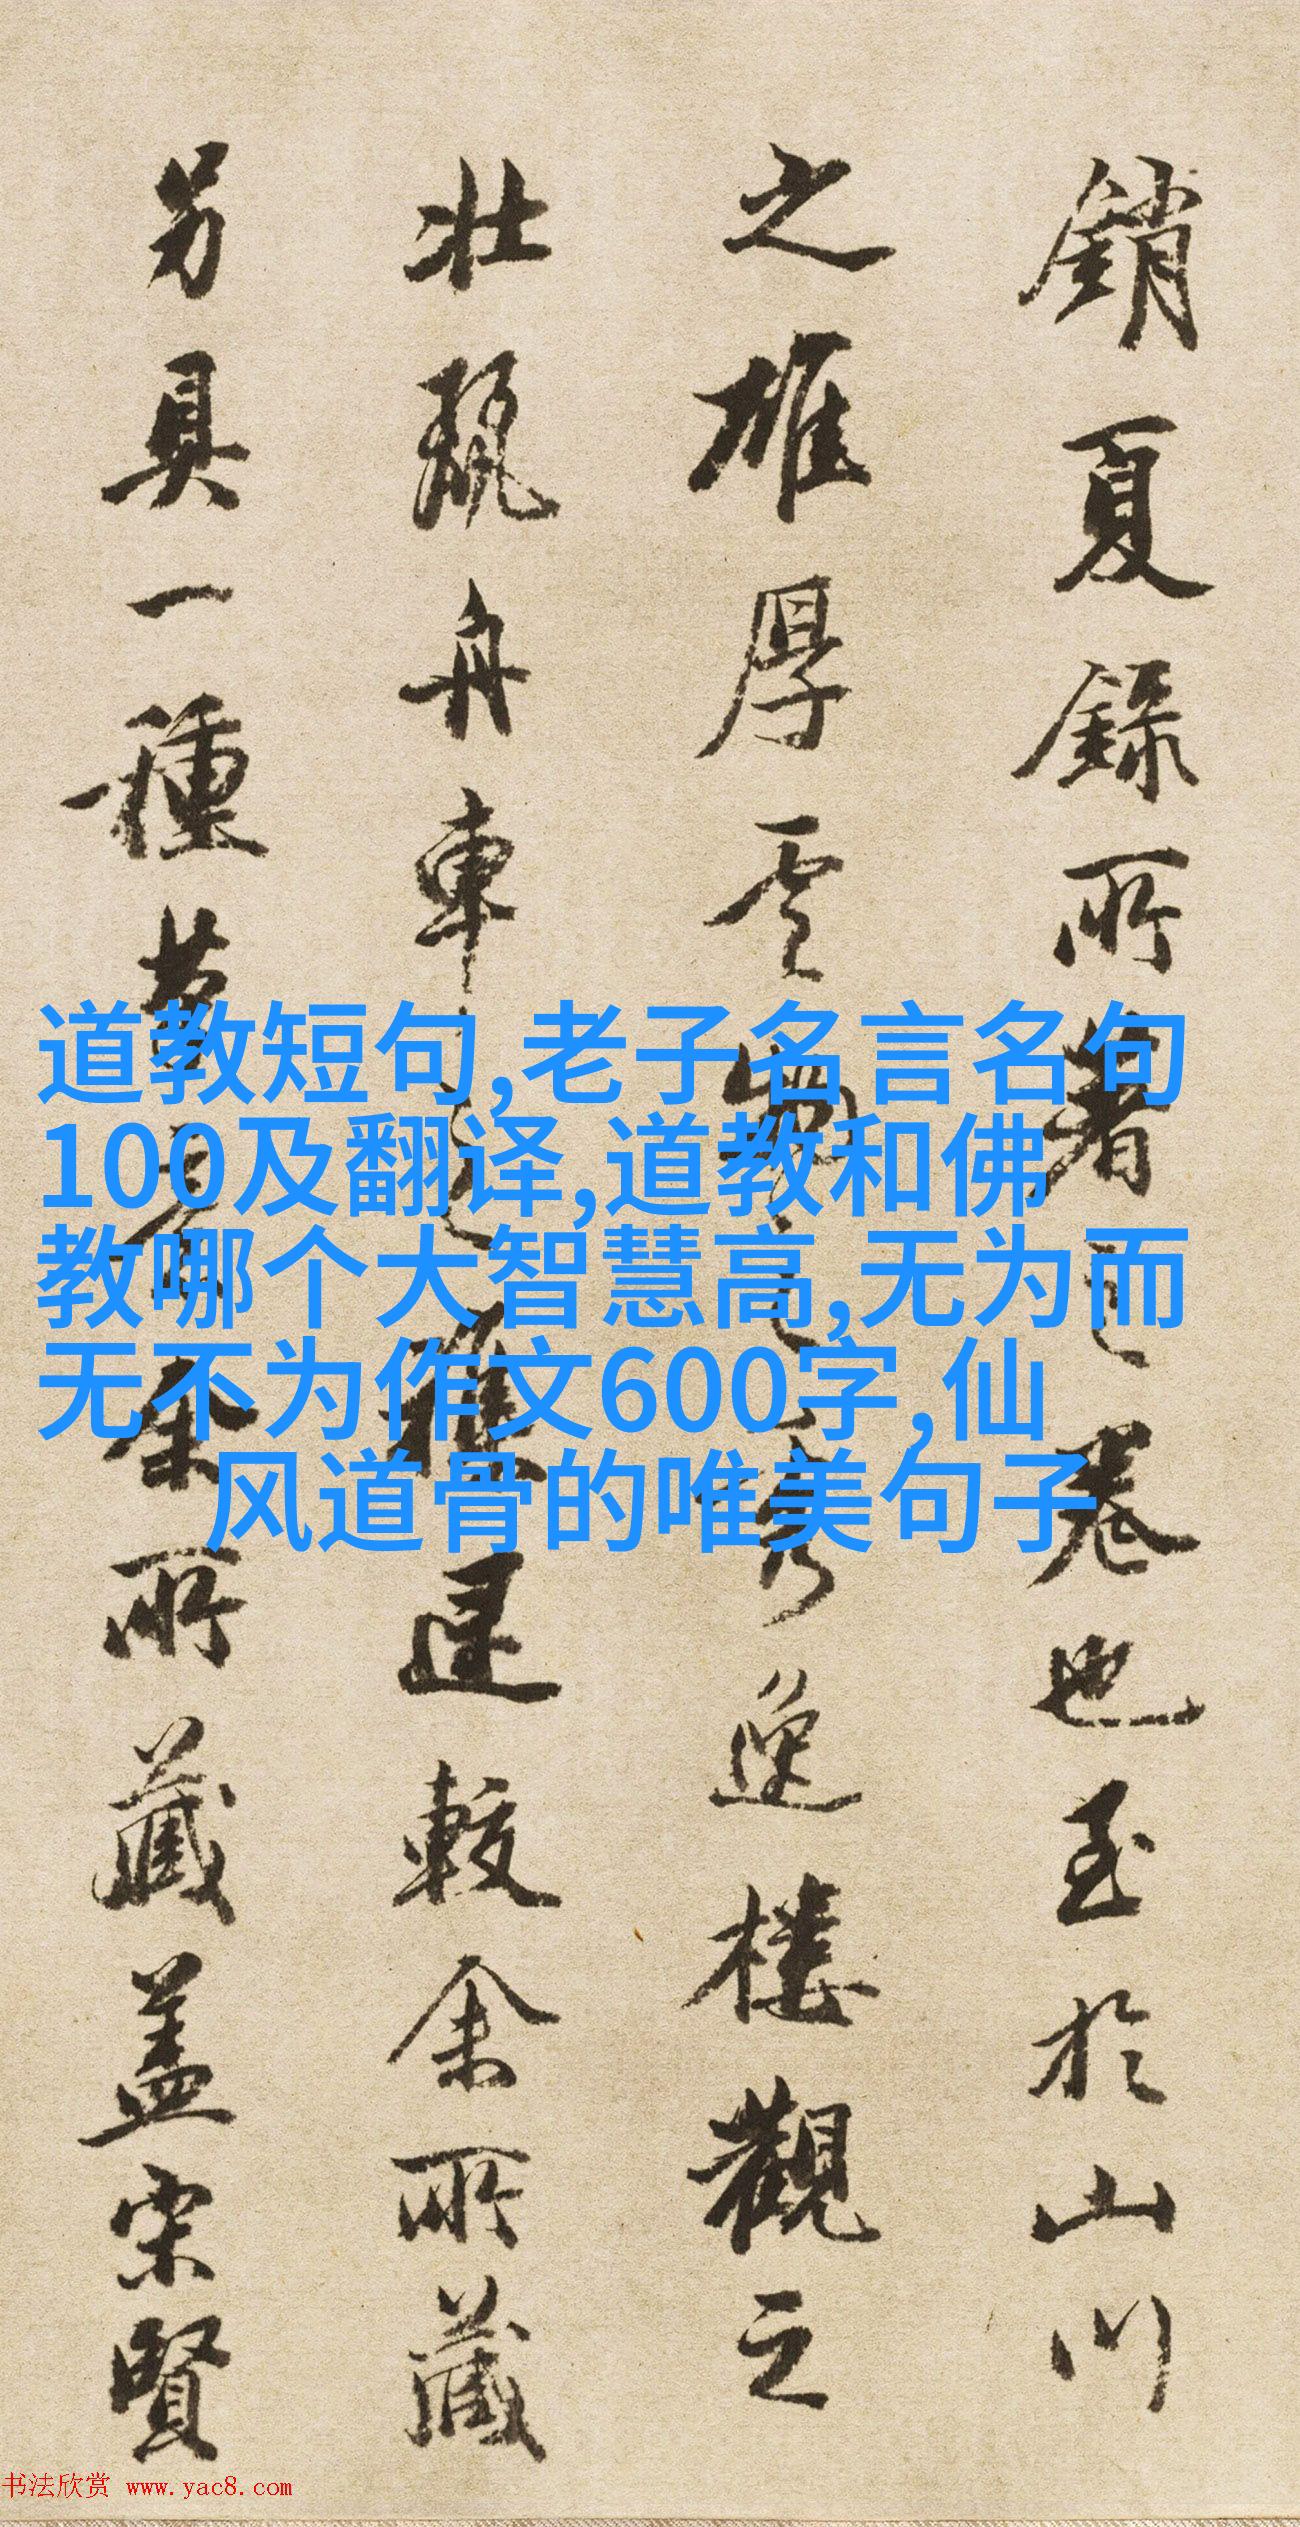 銷夏錄所著之卷也至於山川
之雄厚雲物之秀逸樓觀之
壯麗舟車之雜遝較余所藏
另具一種余所藏蓋宋賢
道教短句,老子名言名句
100及翻译,道教和佛
教哪个大智慧高,无为而
无不为作文600字,仙
风道骨的唯美句子
书法欣赏 www.yac8.com